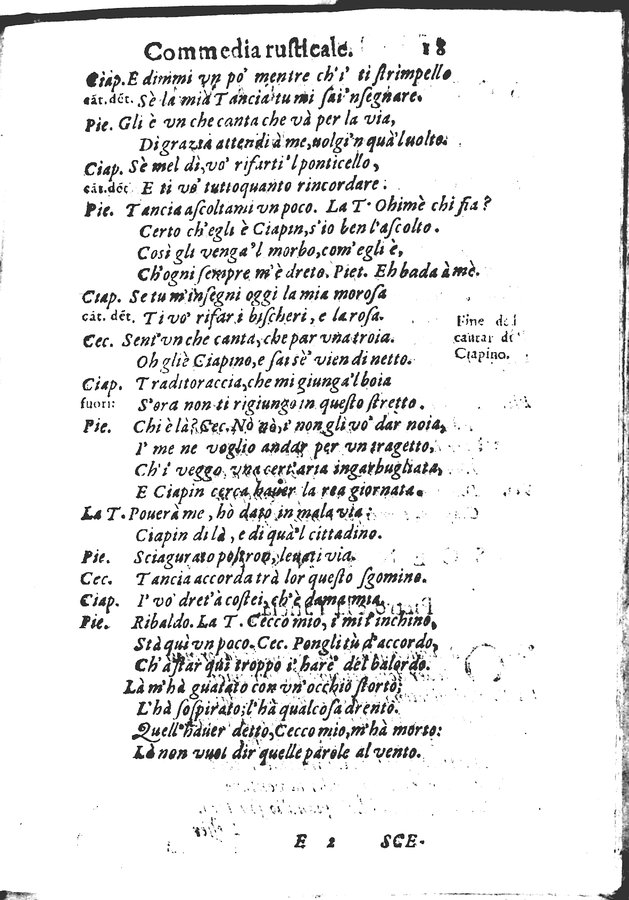 Commedia rusticale. 18
Ciap. E dimmi vn po' mentre ch'i' ti strimpello
cāt. dēt. Sè la mia Tancia tu mi fai 'nsegnare.
Pie. Gli è vn che canta che và per la via,
Di grazia attendi à me, uolgi 'n quà 'l uolto.
Ciap. Sè mel dì, vo' rifarti 'l ponticello,
cāt. dēt E ti vo' tuttoquanto rincordare.
Pie. Tancia ascoltami vn poco. La T. Ohimè chi fia?
Certo ch'egli è Ciapin, s'io ben l'ascolto.
Così gli venga 'l morbo, com'egli è,
Ch'ogni sempre m'è dreto. Piet. Eh bada à mè.
Ciap. Se tu m'insegni oggi la mia morosa
cāt. dēt. Ti vo' rifar i bischeri, e la rosa.
Fine del
cantar di
Ciapino.
Cec. Sent'un che canta, che par vna troia.
Oh gliè Ciapino, e sai sè' vien di netto.
Ciap. Traditoraccia, che mi giunga 'l boia
fuori: S'ora non ti rigiungo in questo stretto.
Pie. Chi è là? Cec. Nò nò, i' non gli vo' dar noia,
I' me ne voglio andar per vn tragetto,
Ch'i' veggo vna cert'aria ingarbugliata,
E Ciapin cerca hauer la rea giornata.
La T. Pouera me, hò dato in mala via:
Ciapin di là, e di quà 'l cittadino.
Pie. Sciagurato poltron, leuati via.
Cec. Tancia accorda trà lor questo sgomino.
Ciap. I' vo' dret'à costei, ch'è dama mia.
Pie. Ribaldo. La T. Cecco mio, i' mi t'inchino,
Stà quì vn poco. Cec. Pongli tù d'accordo,
Ch'à star quì troppo i' harè' del balordo.
Là m'hà guatato con vn'occhio storto;
L'hà sospirato; l'hà qualcosa drento.
Quell'hauer detto, Cecco mio, m'hà morto:
Là non vuol dir quelle parole al vento.
E 2 SCE-